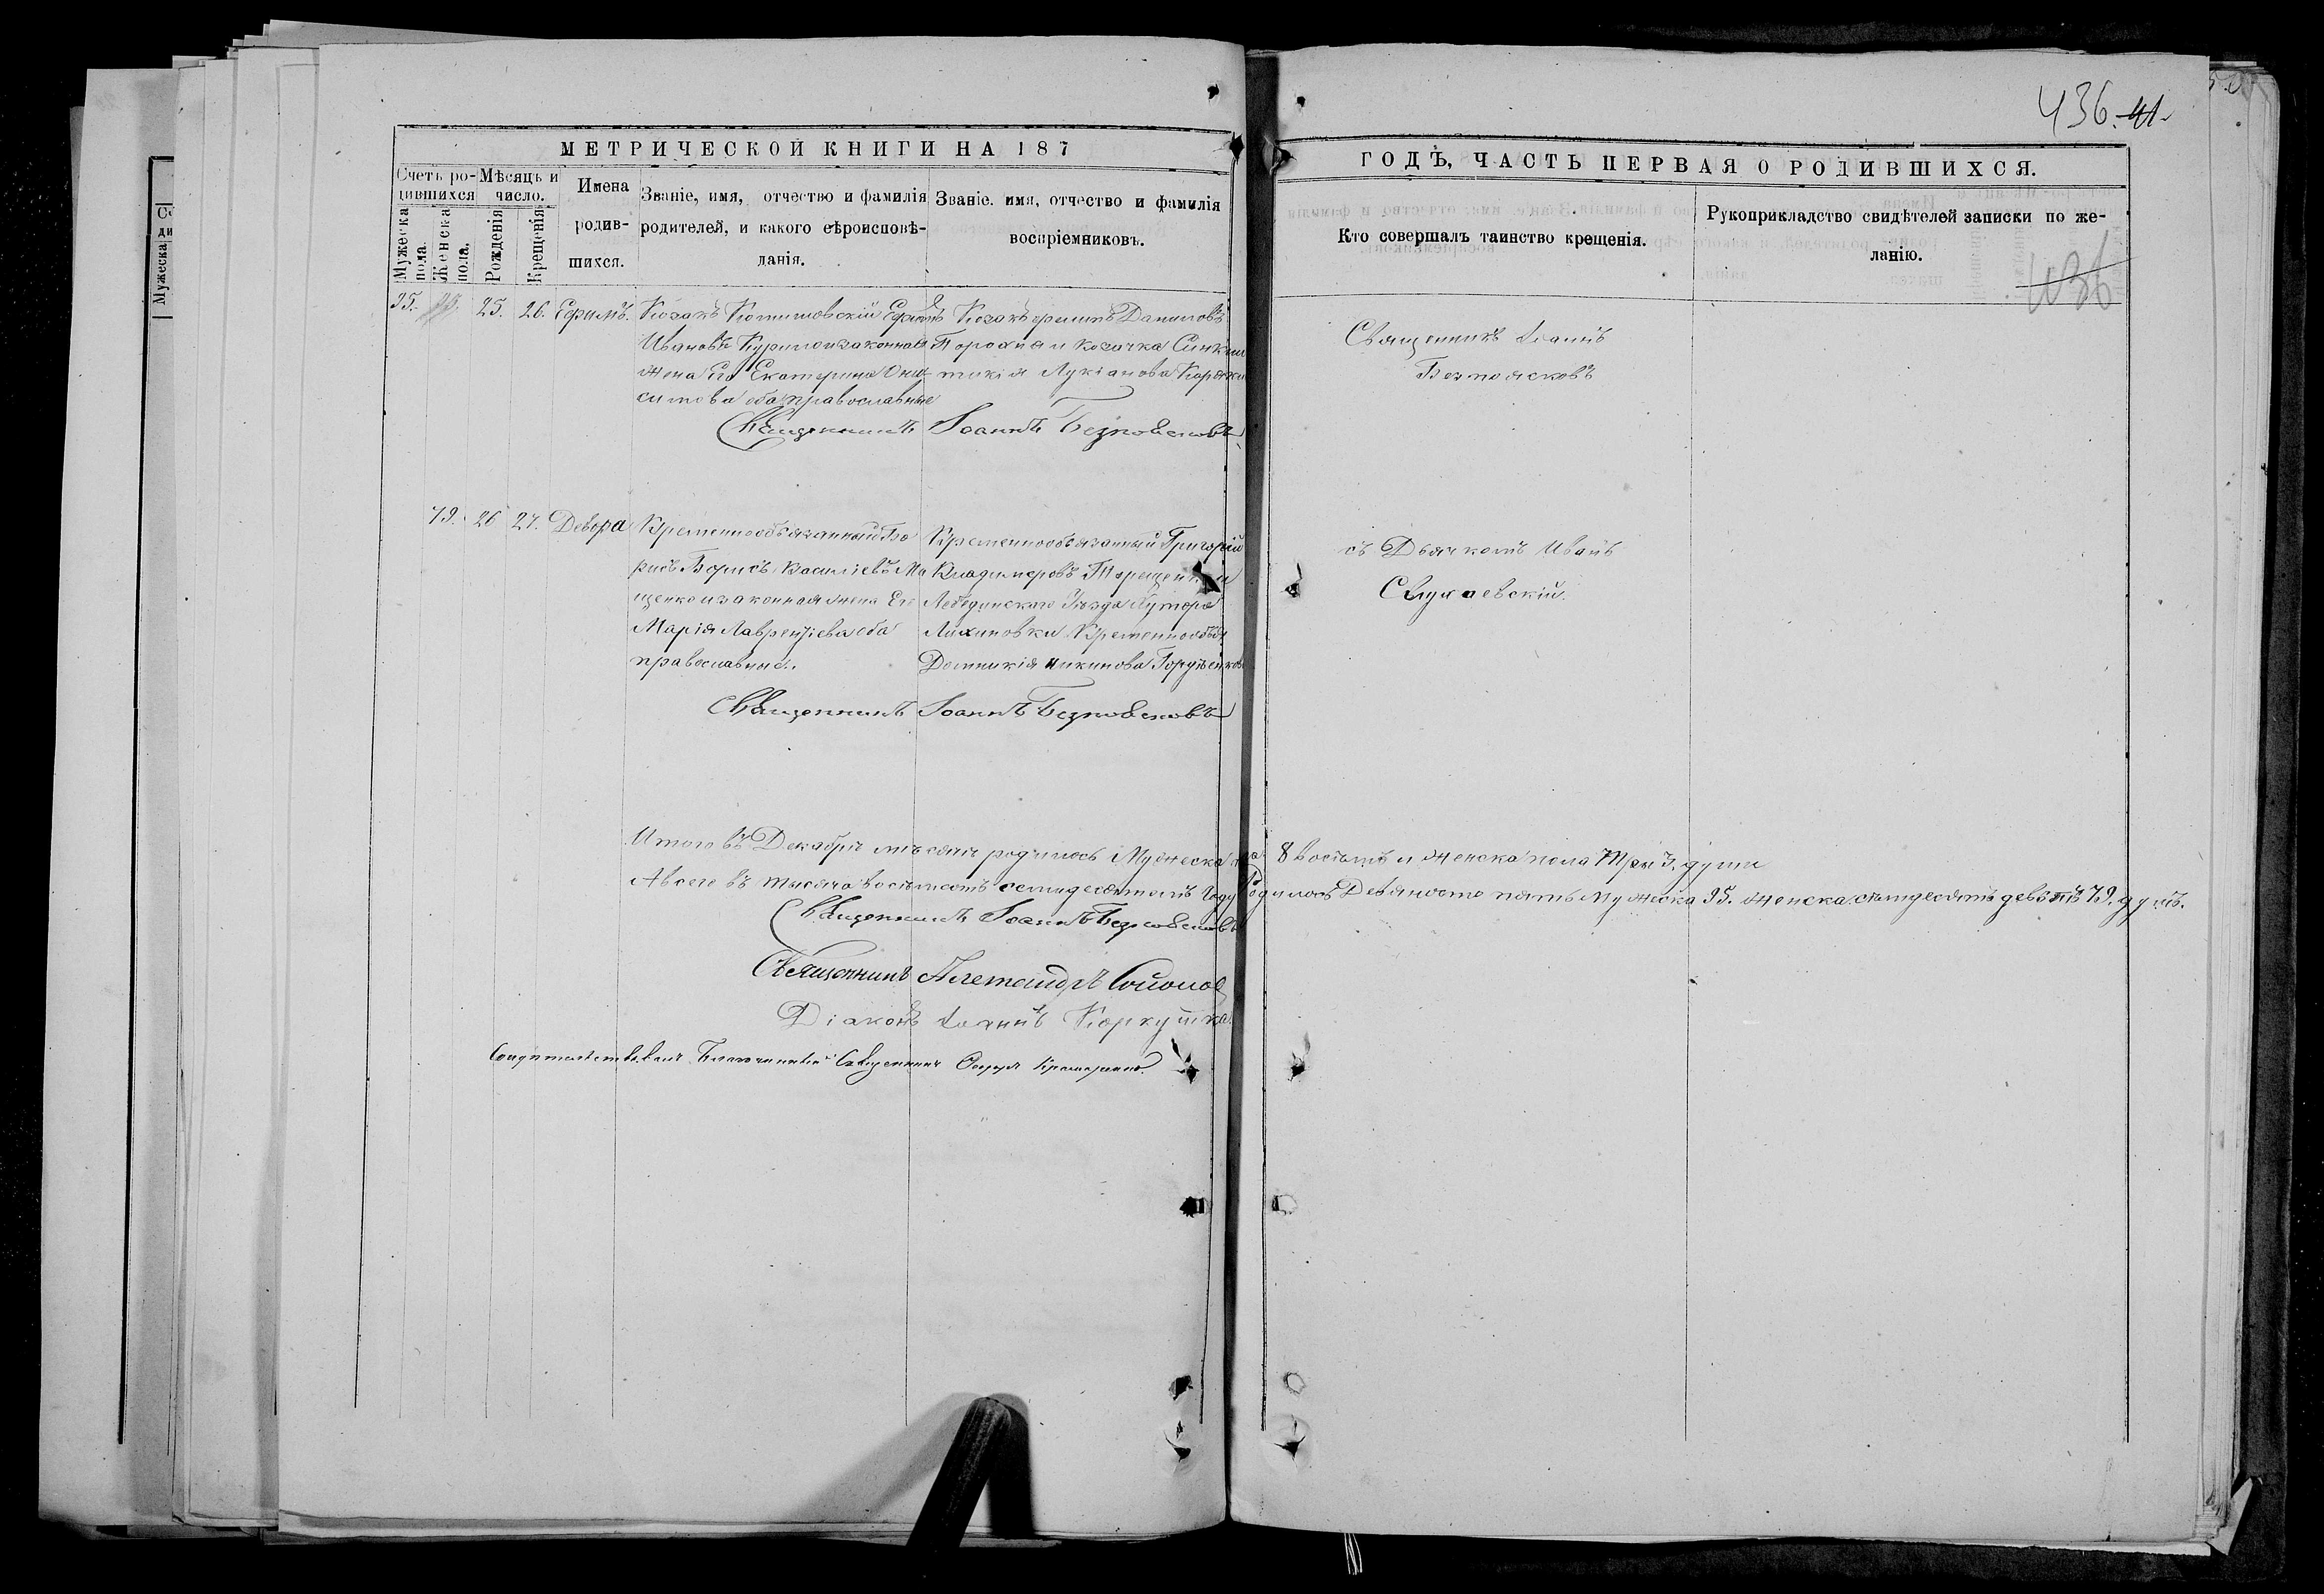 436. 41.
МЕТРИЧЕСКОЙ КНИГИ НА 187
ГОДЪ, ЧАСТЬ ПЕРВАЯ О РОДИВШИХСЯ.
Счетъ ро-
дившихся
Мужеска
пола.
Женска
пола.
Мѣсяцъ и
число.
Рожденія
Крещенія
Имена
родив-
шихся.
Званіе, имя, отчество и фамилія
родителей, и какого вѣроисповѣ-
данія.
Званіе. имя, отчество и фамилія
воспріемниковъ.
Кто совершалъ таинство крещенія.
Рукоприкладство свидѣтелей записки по же-
ланію.
436
95. 25. 26. Ефимъ.
Козакъ
Ивановъ законная
жена Его Екатерина Они
симова оба православные
Козакъ Даниловъ
и козачка Синкли
тикія Лукіанова
Священникъ Іоаннъ
Безпоясковъ
Священникъ Іоаннъ Безпоясковъ
79. 26 27. Девора
Временнообязанный Бо
рисъ Борисъ Василіевъ Ма
щенко и законная жена Его
Марія Лаврентіева оба
православные.
Временнообязанный Григорій
Владимеровъ
Лебединскаго Уѣзда Хутора
Лихиновки Временнообя
Домникія
съ Дьячкомъ Иванъ
Слукаевскій.
Священникъ Іоаннъ Безпоясковъ
Итого въ Декабрѣ мѣсяцѣ родилось Мужеска пола 8 восемъ и Женска пола Три 3. души
А всего въ тысяча восемьсотъ семидесятомъ Году Родилось Девяносто пять Мужеска 95. Женска семдесятъ девять 79. душъ.
Священникъ Іоаннъ Безпоясковъ
Священникъ Александръ
Діаконъ Іоаннъ Коркушка.
Благочинный Священникъ